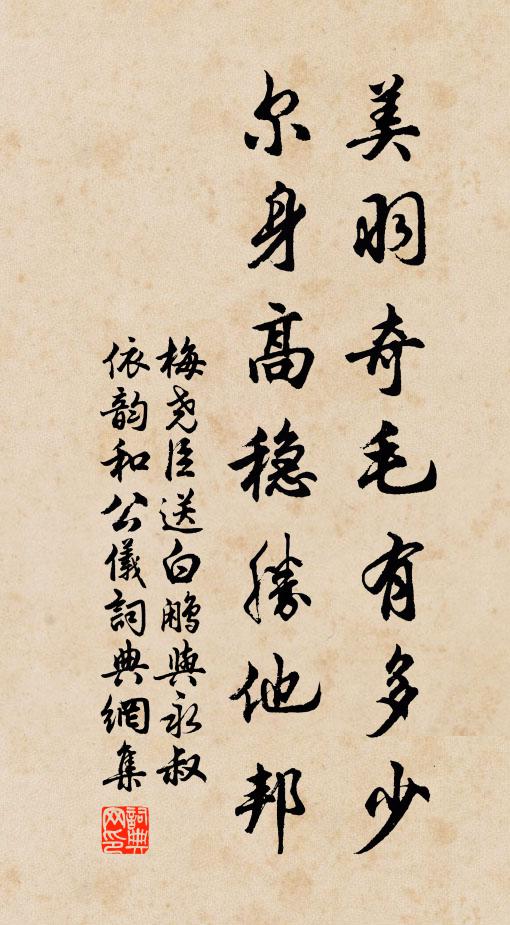 美羽奇毛有多少
尔身高稳勝他邦
梅尧臣送白鹇與永叔
依韵和公儀詞典網集
詞典
网印